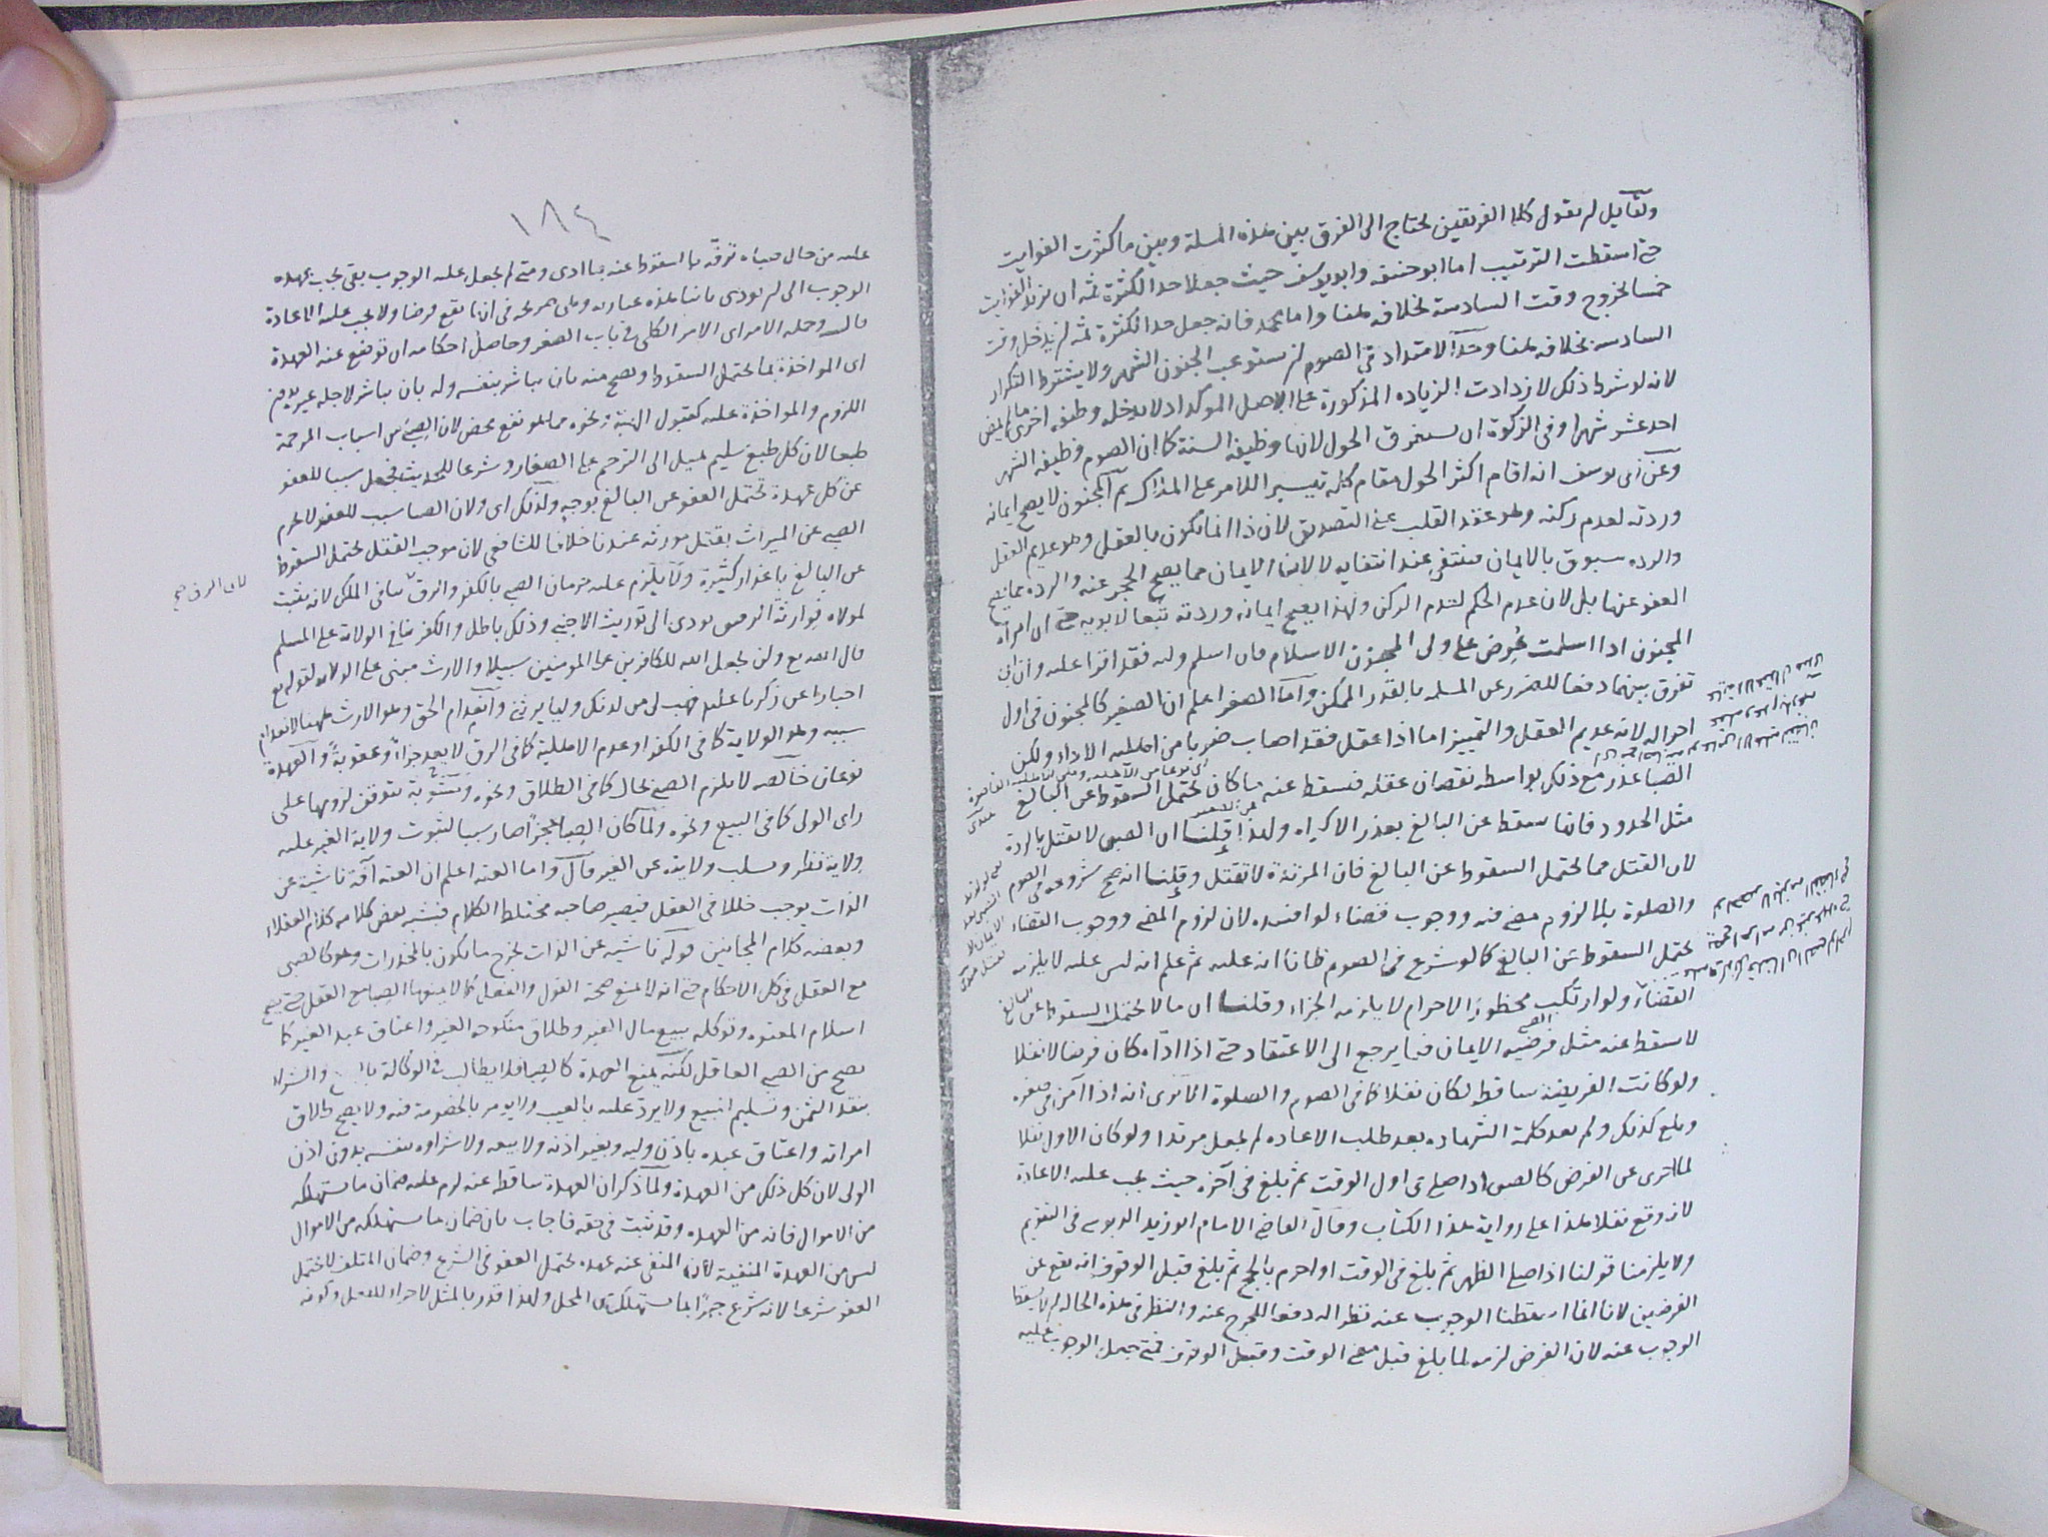 ولقايل ان يقول كلا الفريقين يحتاج الى الفرق بين هذه المسلة وبين ما كثرت الفوايت
حتى اسقطت الترتيب اما ابو حنيفه وابو يوسف حيث جعلا حد الكثرة ثمه ان يزيد الفوايت
خمسا بخروج وقت السادسة بخلافه ههنا واما محمد فانه جعل حد الكثرة ثمه ان يدخل وقت
السادسه بخلافه ههنا وحد الامتداد في الصوم ان يستوعب الجنون الشهر ولا يشترط التكرار
لانه لو شرط ذلك لازدادت الزياده المذكورة على الاصل الموكد اذ لا يدخل وظيفه اخرى ما لم يمض
احد عشر شهرا وفي الزكوة ان يستغرق الحول لانها وظيفة السنة كما ان الصوم وظيفه الشهر
وعن ابى يوسف انه اقام اكثر الحول مقام كله تيسيرا للامر على المدرك ثم المجنون لا يصح ايمانه
وردته لعدم ركنه وهو عقد القلب على التصديق لان ذا انما يكون بالعقل وهو عديم العقل
والرده سبوق بالايمان فينتفى عند انتفايه لا لان الايمان مما يصح الحجر عنه والرده مما يصح
العفو عنها بل لان عدم الحكم لعدم الركن ولهذا يصح ايمانه وردته تبعا لابويه حتى ان امراة
المجنون اذا اسلمت عرض على ولى المجنون الاسلام فان اسلم وليه فقد اقرا عليه وان ابى
تفرق بينهما دفعا للضرر عن المسلمه بالقدر الممكن واما الصغر اعلم ان الصغير كالمجنون في اول
احواله لانه عديم العقل والتمييز اما اذا عقل فقد اصاب ضربا من اهلية الاداء ولكن
الصبا عذر مع ذلك بواسطه نقصان عقله فسقط عنه ما كان يحتمل السقوط عن البالغ
مثل الحدود فانها يسقط عن البالغ بعذر الاكراه ولهذا قلنا ان الصبي لا يقتل بالردة
لان القتل مما يحتمل السقوط عن البالغ فان المرتدة لا تقتل وقلنا انه صح شروعه في الصوم
والصلوة بلا لزوم مضى فيه ووجوب قضاء لو افسده لان لزوم المضى ووجوب القضاء
يحتمل السقوط عن البالغ كما لو شرع في الصوم ظانا انه عليه ثم علم انه ليس عليه لا يلزمه
القضاء ولو ارتكب محظور الاحرام لا يلزمه الجزاء وقلنا ان ما لا يحتمل السقوط عن البالغ
لا سقط عنه مثل فرضيه الايمان فيما يرجع الى الاعتقاد حتى اذا اداه كان فرضا لا نفلا
ولو كانت الفريضه ساقطه لكان نفلا كما في الصوم والصلوة الا ترى انه اذا آمن في صغره
وبلغ كذلك ولم يعد كلمة الشهاده بعد طلب الاعاده لم يجعل مرتدا ولو كان الاول نفلا
لما اجزى عن الفرض كالصبى اذا صلى في اول الوقت ثم بلغ في آخره حيث يجب عليه الاعادة
لانه وقع نفلا هذا على رواية هذا الكتاب وقال القاضى الامام ابو زيد الدبوسى في التقويم
ولا يلزمنا قولنا اذا صلى الظهر ثم بلغ في الوقت او احرم بالحج ثم بلغ قبل الوقوف انه يقع عن
الفرضين لانا انما اسقطنا الوجوب عنه نظرا له دفعا للحرج عنه والنظر في هذه الحاله ان لا يسقط
الوجوب عنه لان الفرض لزمه لما بلغ قبل مضى الوقت وقبل الوقوف فمتى جعل الوجوب عليه
١٨٤
عليه من حال صباه ترفه بالسقوط عنه بما ادى ومتى لم يجعل عليه الوجوب بقى يجب بعهده
الوجوب الى ان يودى ثانيا هذه عبارته وهى صريحه في انها تقع فرضا ولا يجب عليه الاعادة
قال وجمله الامر اى الامر الكلى في باب الصغر وحاصل احكامه ان توضع عنه العهدة
اى المواخذة بما يحتمل السقوط ويصح منه بان يباشر بنفسه وله بان يباشر لاجله غيره بدون
اللزوم والمواخذة عليه كقبول الهبة ونحوه مما هو نفع محض لان الصبى من اسباب المرحمة
طبعا لان كل طبع سليم يميل الى الترحم على الصغار وشرعا للحديث فجعل سببا للعفو
عن كل عهدة تحتمل العفو عن البالغ بوجه ولذلك اى ولان الصبا سبب للعفو لا يحرم
الصبى عن الميراث بقتل مورثه عندنا خلافا للشافعى لان موجب القتل يحتمل السقوط
عن البالغ باعذار كثيرة ولا يلزم عليه حرمان الصبى بالكفر والرق ينافى الملك لانه يثبت
لمولاه فوارثة الرقيق يودى الى توريث الاجنبى وذلك باطل والكفر ينافى الولاية على المسلم
قال الله تع ولن يجعل الله للكافرين على المومنين سبيلا والارث مبنى على الولايه لقوله تع
اخبارا عن زكريا عليم فهب لى من لدنك وليا يرثنى وانعدام الحق وهو الارث ههنا لانعدام
سببه وهو الولاية كما في الكفر او عدم الاهلية كما في الرق لا يعد جزاء وعقوبة والعهدة
نوعان خالصه لا يلزم الصبى بحال كما في الطلاق ونحوه ومشوبة يتوقف لزومها على
راى الولى كما في البيع ونحوه ولما كان الصبا عجزا صار سببا لثبوت ولاية الغير عليه
ولاية نظر وسلب ولايته عن الغير قال واما العته اعلم ان العته آفة ناشية عن
الذات يوجب خللا في العقل فيصير صاحبه مختلط الكلام فيشبه بعض كلامه كلام العقلاء
وبعضه كلام المجانين قوله ناشيه عن الذات يخرج ما يكون بالمخدرات وهو كالصبى
مع العقل في كل الاحكام حتى انه لا يمنع صحة القول والفعل كما لا يمنعها الصبا مع العقل حتى يصح
اسلام المعتوه وتوكله ببيع مال الغير وطلاق منكوحه الغير واعتاق عبد الغير كما
يصح من الصبى العاقل لكنه يمنع العهدة كالصبا فلا يطالب في الوكالة والشراء
بنقد الثمن وتسليم المبيع ولا يرد عليه بالعيب ولا يومر بالخصومة فيه ولا يصح طلاق
امراته واعتاق عبده باذن وليه وبغير اذنه ولا بيعه ولا شراوه بنفسه بدون اذن
الولى لان كل ذلك من العهدة ولما ذكر ان العهدة ساقط عنه لزم عليه ضمان ما يستهلكه
من الاموال فانه من العهده وقد ثبت في حقه فاجاب بان ضمان ما يستهلكه من الاموال
ليس من العهدة المنفية لان المنفى عنه عهده يحتمل العفو في الشرع وضمان المتلف لا يحتمل
العفو شرعا لانه شرع جبرا لما يستهلك من المحل ولهذا قدر بالمثل لا جزاء للفعل وكونه
لان الرق صح